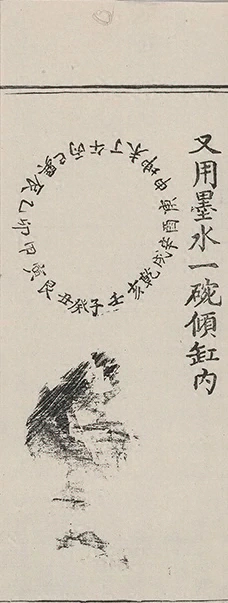 又用墨水一碗傾缸內
子癸丑艮寅甲卯乙辰巽巳丙午丁未坤申庚酉辛戌乾亥壬